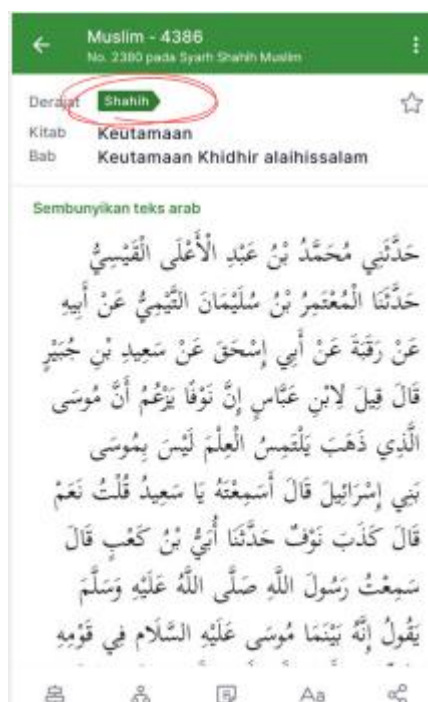 Muslim - 4386
No. 2380 pada Syarh Shahih Muslim
Derajat Shahih
Kitab Keutamaan
Bab Keutamaan Khidhir alaihissalam
Sembunyikan teks arab
حَدَّثَنِي مُحَمَّدُ بْنُ عَبْدِ الْأَعْلَى الْقَيْسِيُّ
حَدَّثَنَا الْمُعْتَمِرُ بْنُ سُلَيْمَانَ التَّيْمِيُّ عَنْ أَبِيهِ
عَنْ رَقَبَةَ عَنْ أَبِي إِسْحَقَ عَنْ سَعِيدِ بْنِ جُبَيْرٍ
قَالَ قِيلَ لِابْنِ عَبَّاسٍ إِنَّ نَوْفًا يَزْعُمُ أَنَّ مُوسَى
الَّذِي ذَهَبَ يَلْتَمِسُ الْعِلْمَ لَيْسَ بِمُوسَى
بَنِي إِسْرَائِيلَ قَالَ أَسَمِعْتَهُ يَا سَعِيدُ قُلْتُ نَعَمْ
قَالَ كَذَبَ نَوْفٌ حَدَّثَنَا أُبَيُّ بْنُ كَعْبٍ قَالَ
سَمِعْتُ رَسُولَ اللَّهِ صَلَّى اللَّهُ عَلَيْهِ وَسَلَّمَ
يَقُولُ إِنَّهُ بَيْنَمَا مُوسَى عَلَيْهِ السَّلَام فِي قَوْمِهِ
Aa